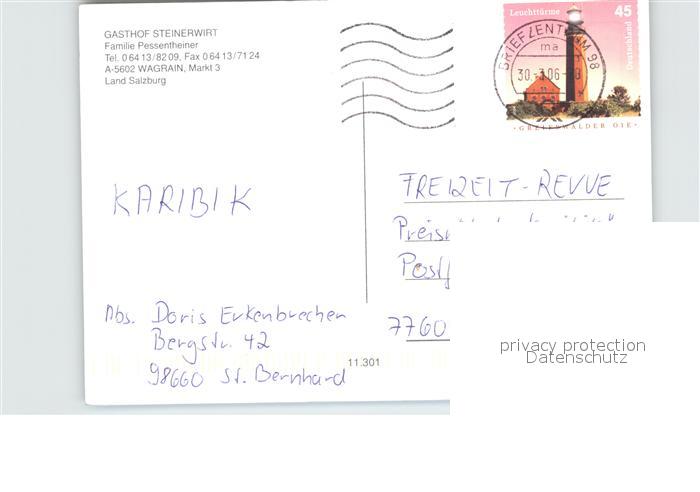 GASTHOF STEINERWIRT
Familie Pessentheiner
Tel. 0 64 13/82 09, Fax 0 64 13/71 24
A-5602 WAGRAIN, Markt 3
Land Salzburg
Leuchttürme 45
Deutschland
BRIEFZENTRUM 98
ma
30.-3.06-
GREIFSWALDER OIE
KARIBIK
FREIZEIT-REVUE
7760
Abs. Doris Erkenbrecher
Bergstr. 42
98660 St. Bernhard
11.301
privacy protection
Datenschutz